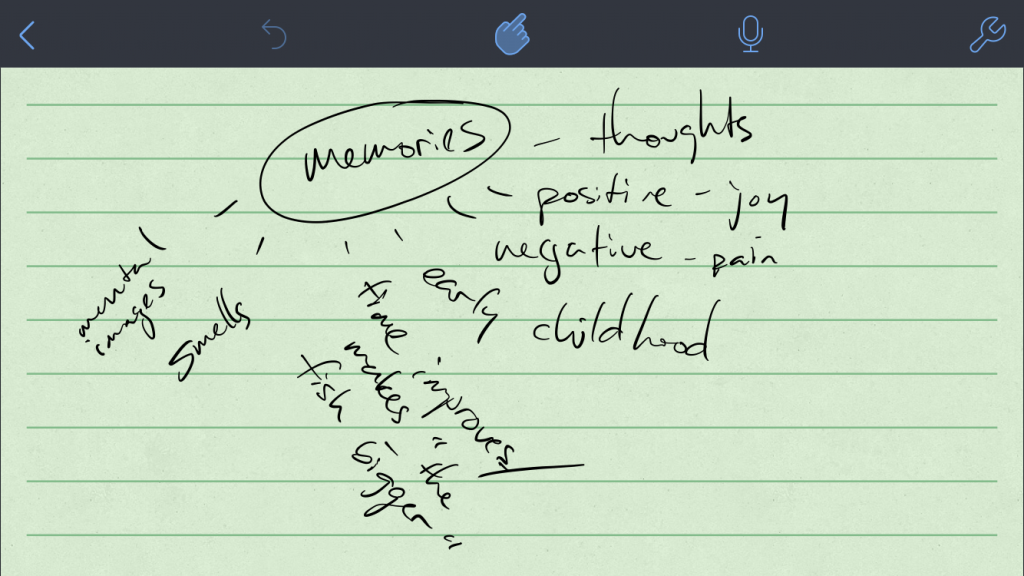 memories
- thoughts
- positive - joy
negative - pain
early childhood
time improves
makes "the
fish bigger"
smells
mental
images